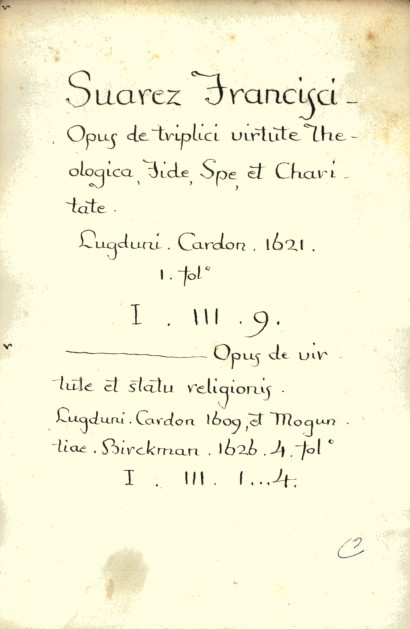 Suarez Francisci-
Opus de triplici virtute The-
ologica, Fide, Spe, et Chari-
tate.
Lugduni. Cardon. 1621.
1. fol°
I. III. 9.
— Opus de vir-
tute et statu religionis.
Lugduni. Cardon 1609, et Mogun.
tiae. Birckman. 1626. 4. fol°
I. III. 1...4.